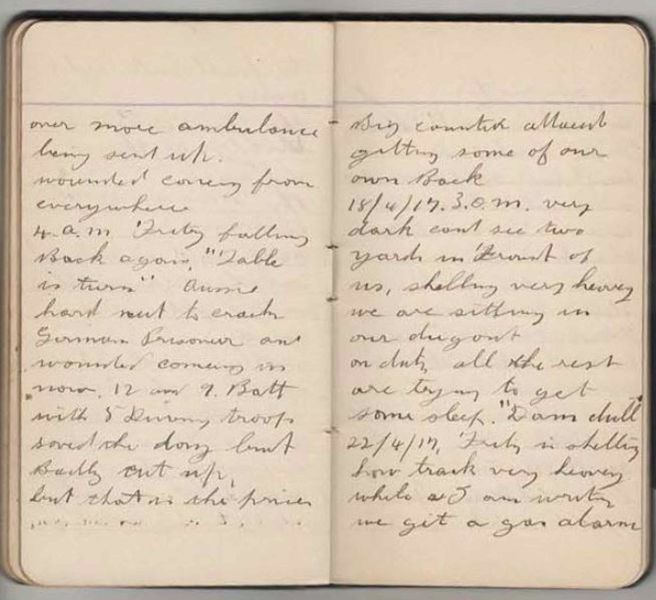 over more ambulance
being sent up.
wounded coming from
everywhere
4. a.m Fritz falling
Back again, "Table
is turn" Aussie
hard nut to crack
German Prisoner and
wounded coming in
now, 12 and 9. Batt
with 5 troops
saved the day but
Badly cut up,
but that is the price
Big counter attack
getting some of our
own Back
18/4/17. 3.a.m. very
dark cant see two
yards in Front of
us, shelling very heavy
we are sitting in
our dugout
on duty all the rest
are trying to get
some sleep. "Dam dull"
22/4/17, Fritz is shelling
how track very heavy
while as I am writing
we get a gas alarm